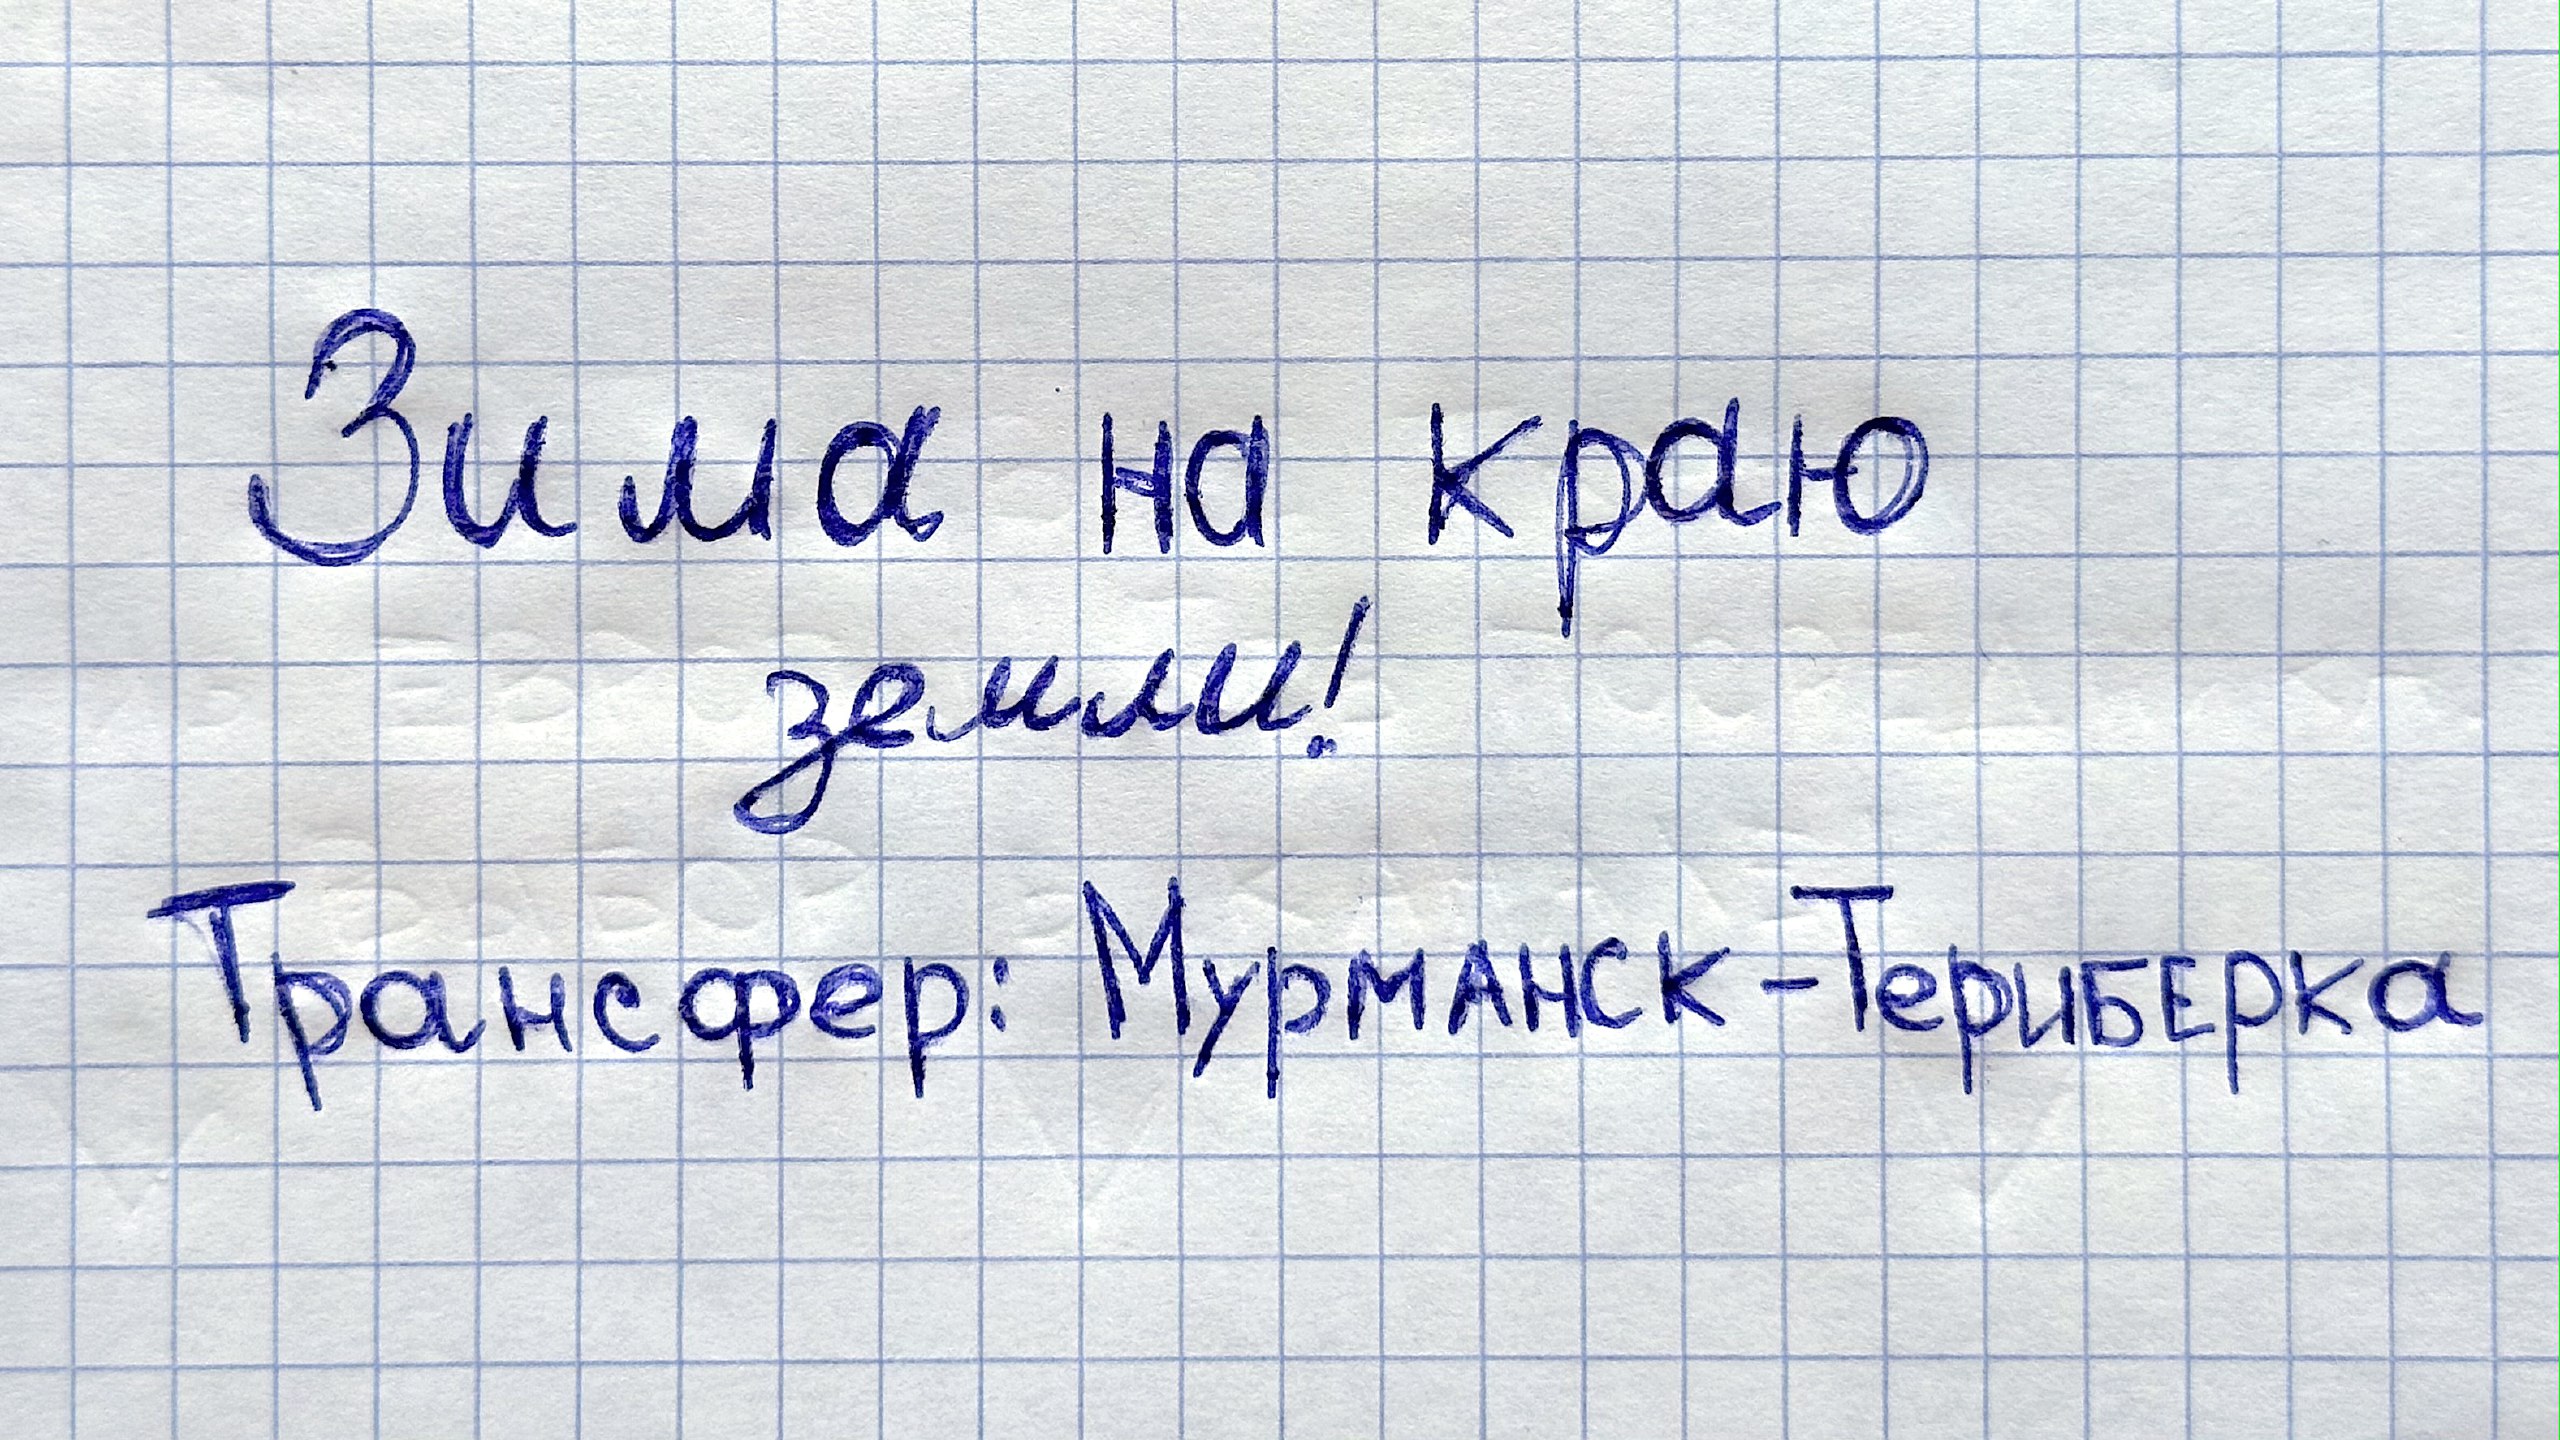 Зима на краю
земли!
Трансфер: Мурманск-Териберка